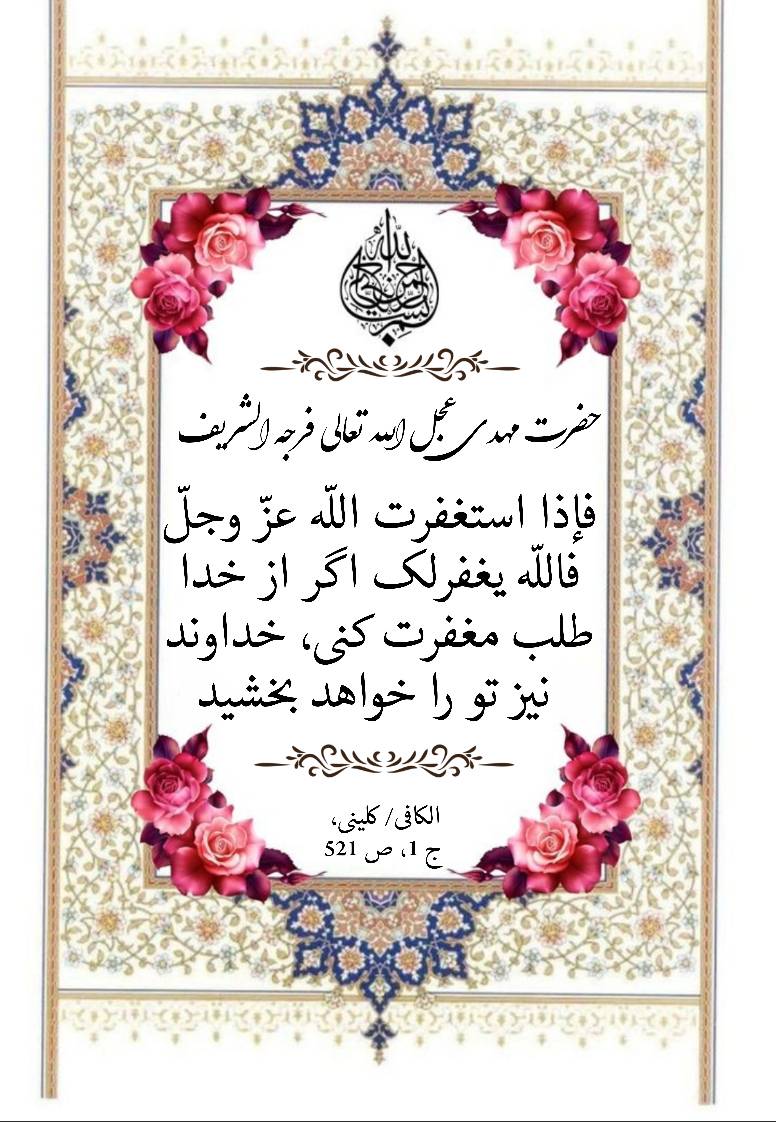 بسم الله الرحمن الرحیم
حضرت مهدی عجل الله تعالی فرجه الشریف
فإذا استغفرت اللّه عزّ وجلّ
فاللّه یغفرلک اگر از خدا
طلب مغفرت کنی، خداوند
نیز تو را خواهد بخشید
الکافی/ کلینی،
ج 1، ص 521